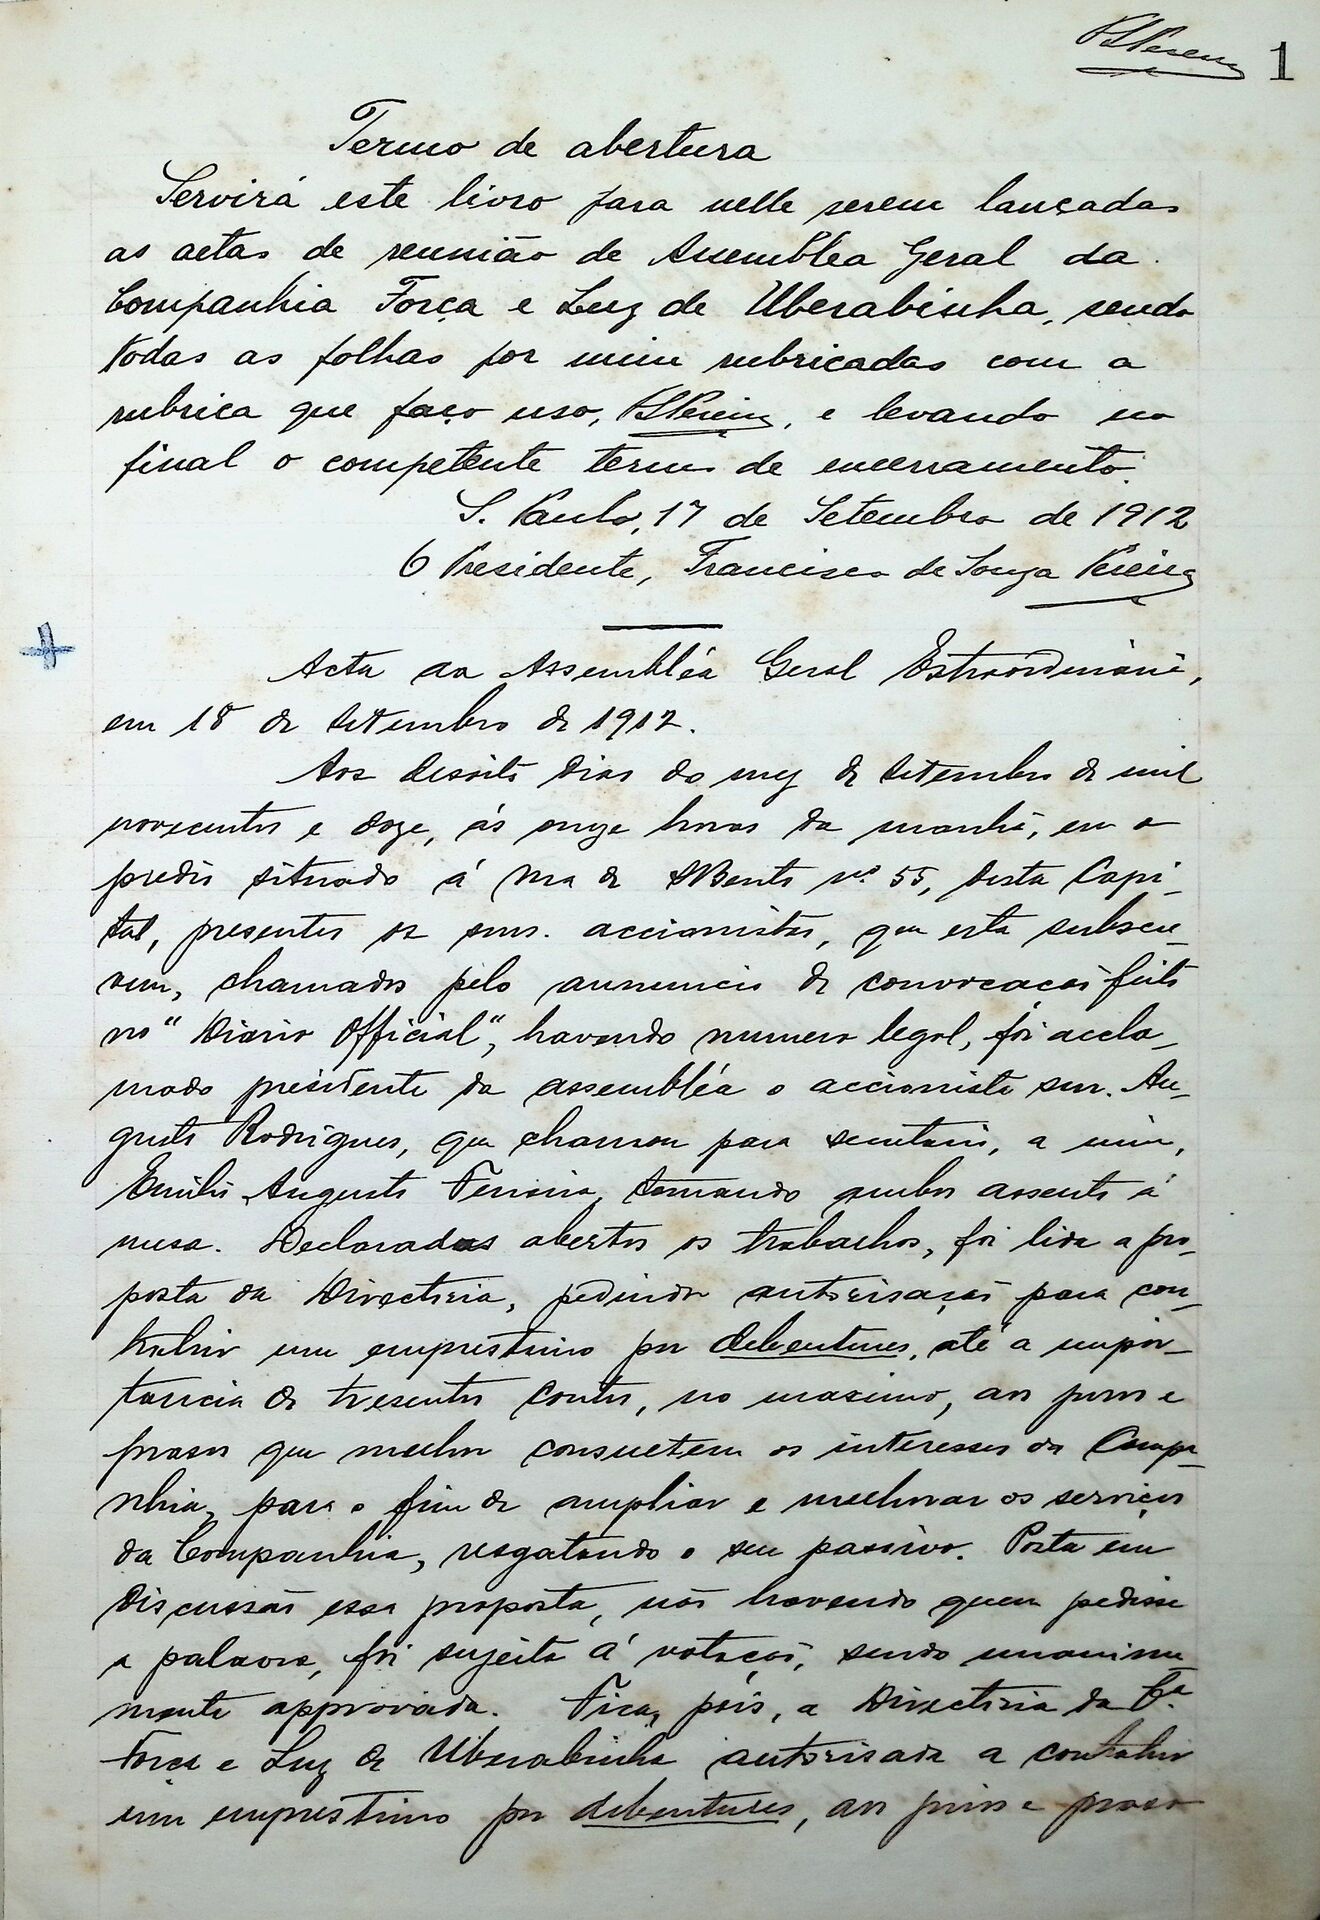 FSPereira 1
Termo de abertura
Servirá este livro para nelle serem lançadas
as actas de reunião de Assemblea Geral da
Companhia Força e Luz de Uberabinha, sendo
todas as folhas por mim rubricadas com a
rubrica que faço uso, FSPereira, e levando no
final o competente termo de encerramento.
S. Paulo, 17 de Setembro de 1912
O Presidente, Francisco de Souza Pereira
Acta da Assembléa Geral Extraordinaria,
em 18 de Setembro de 1912.
Aos desoito dias do mez de Setembro de mil
novecentos e doze, ás onze horas da manhã, em o
predio situado á rua de S Bento nº 55, desta Capi-
tal, presentes os snrs. accionistas, que esta subscre-
vem, chamados pelo annuncio de convocação feito
no "Diario Official", havendo numero legal, foi accla-
mado presidente da assembléa o accionista snr. Au-
gusto Rodrigues, que chamou para secretario, a mim,
Emilio Augusto Ferreira, tomando ambos assento á
mesa. Declarados abertos os trabalhos, foi lida a pro-
posta da Directoria, pedindo autorisação para con-
trahir um emprestimo por debentures, até a impor-
tancia de tresentos contos, no maximo, aos juros e
prasos que melhor consultem os interesses da Compa-
nhia, para o fim de ampliar e melhorar os serviços
da Companhia, resgatando o seu passivo. Posta em
discussão essa proposta, não havendo quem pedisse
a palavra, foi sujeita á votação, sendo unanime-
mente approvada. Fica, pois, a Directoria da Cª
Força e Luz de Uberabinha autorisada a contrahir
um emprestimo por debentures, aos juros e praso